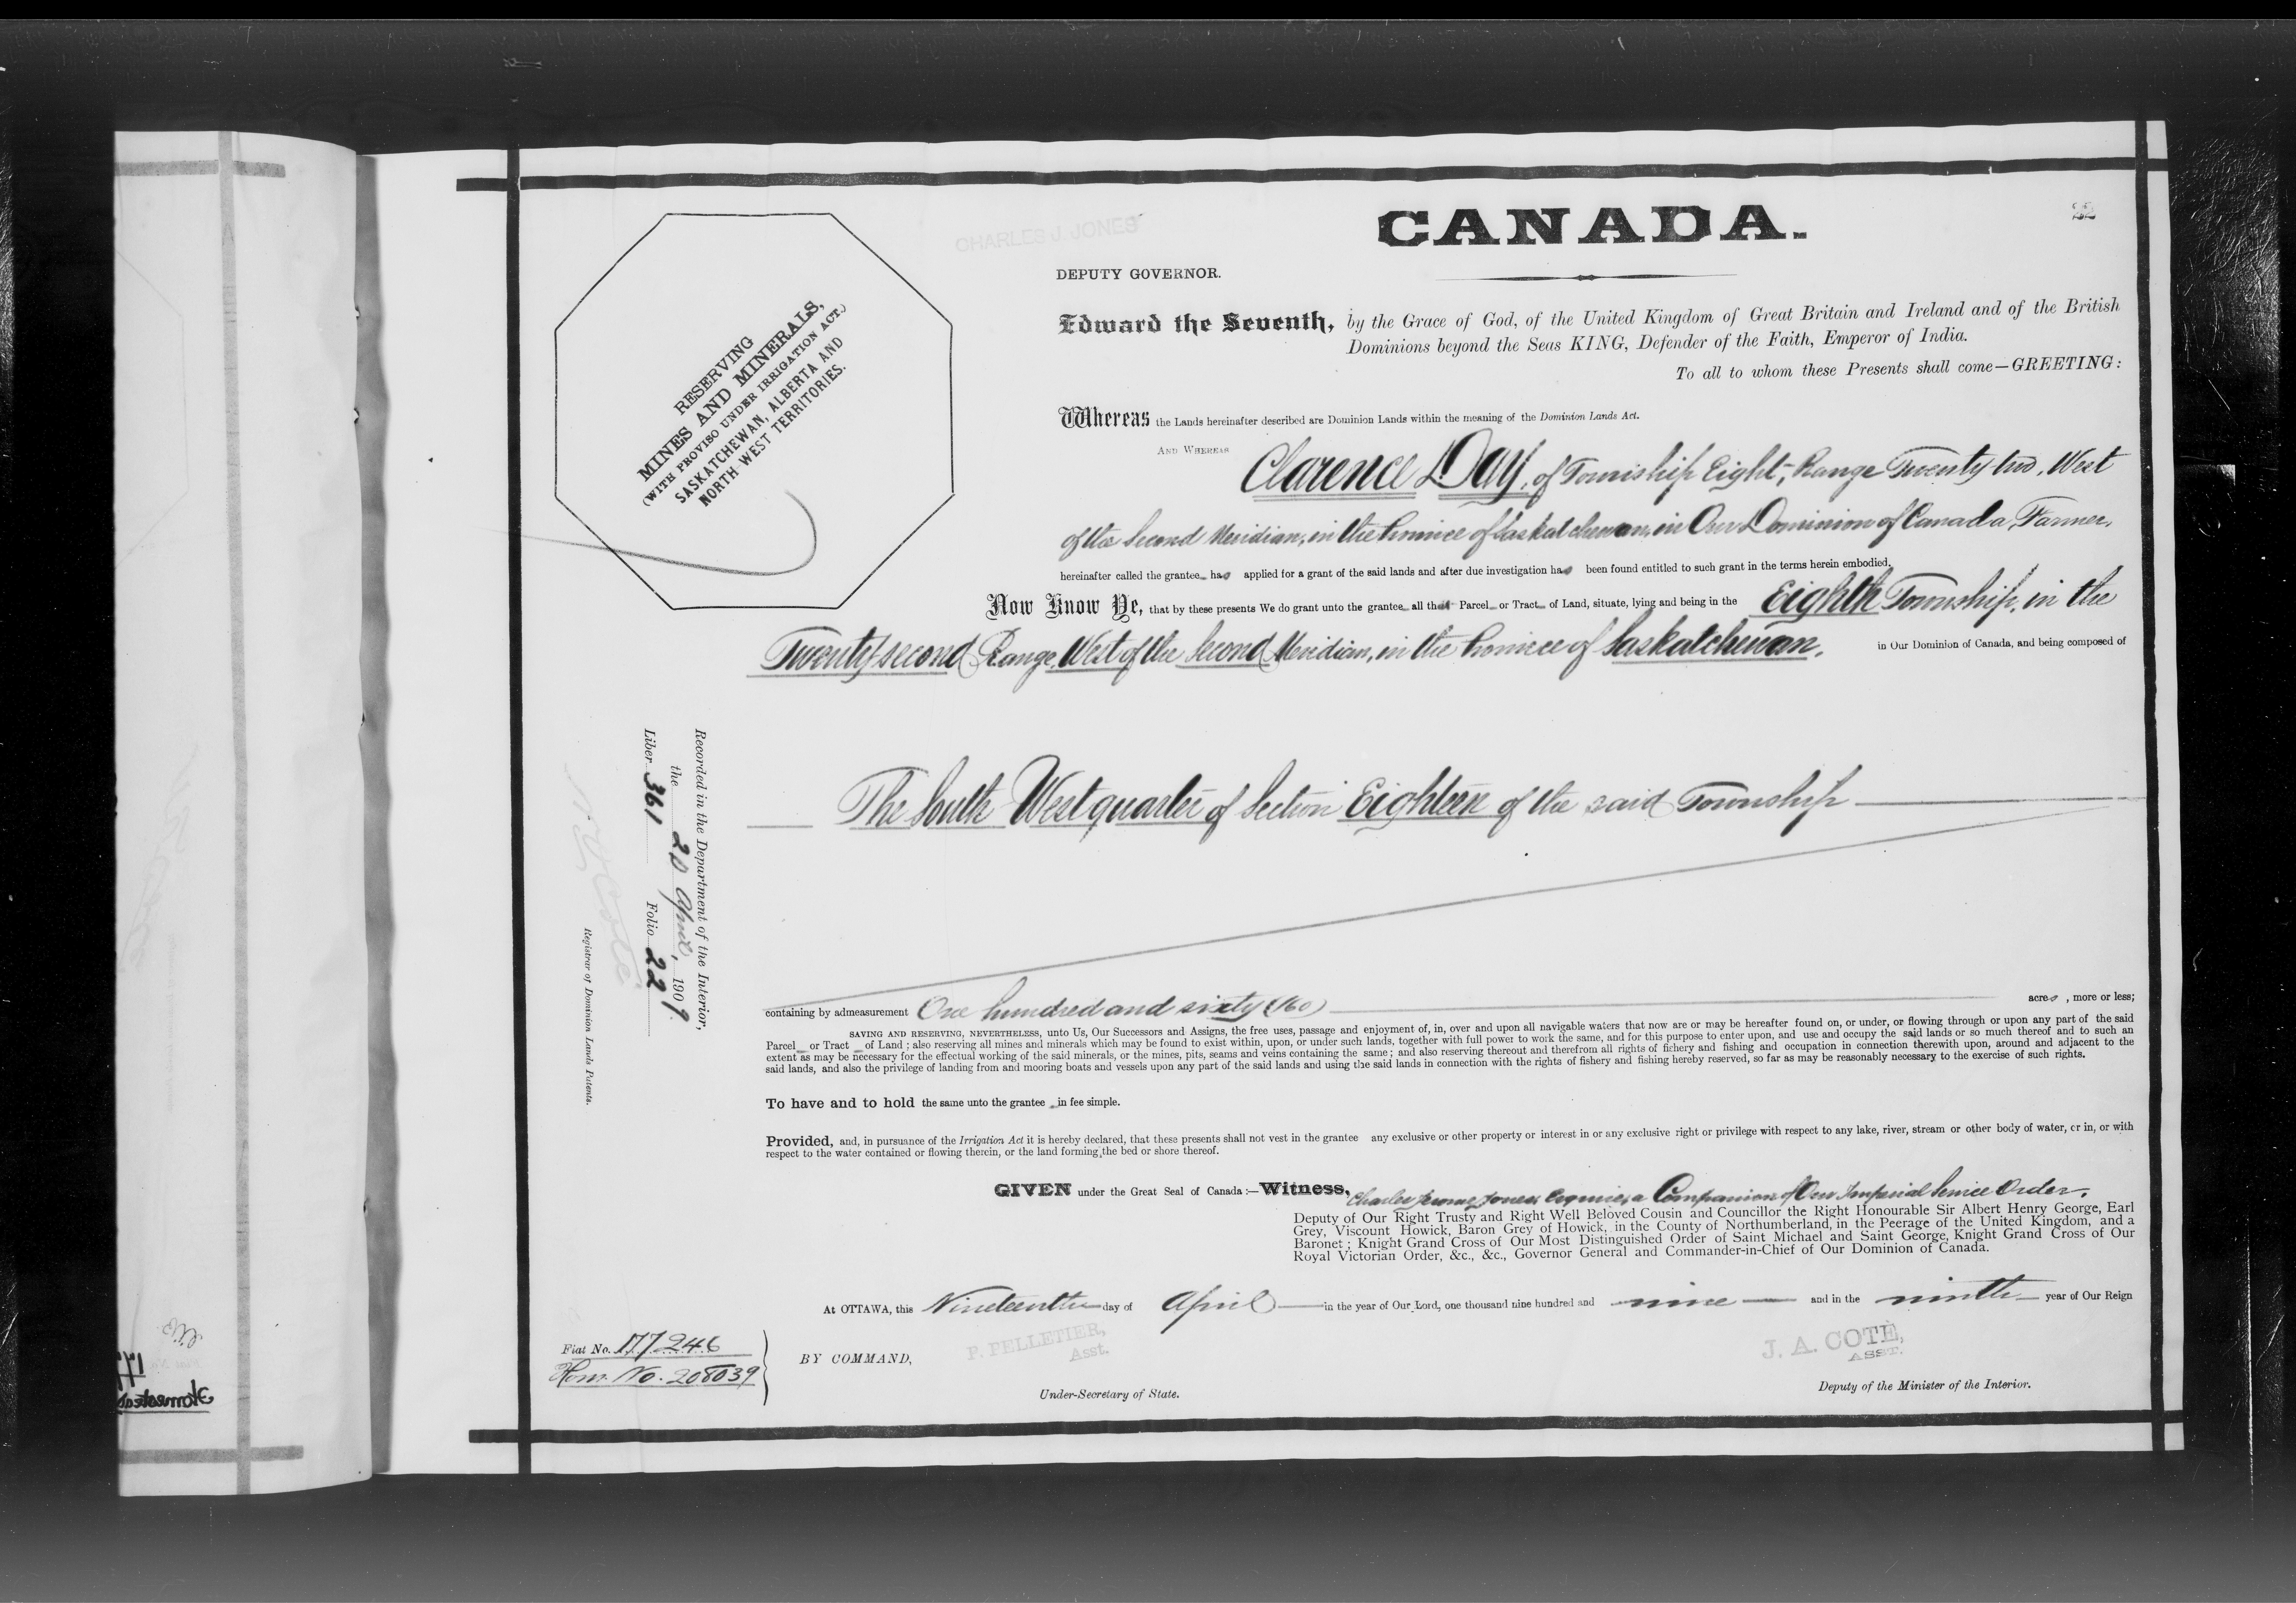 22
CHARLES J. JONES
CANADA.
DEPUTY GOVERNOR.
Edward the Seventh, by the Grace of God, of the United Kingdom of Great Britain and Ireland and of the British
Dominions beyond the Seas KING, Defender of the Faith, Emperor of India.
To all to whom these Presents shall come—GREETING:
RESERVING
MINES AND MINERALS,
(WITH PROVISO UNDER IRRIGATION ACT.)
SASKATCHEWAN, ALBERTA AND
NORTH WEST TERRITORIES.
Whereas the Lands hereinafter described are Dominion Lands within the meaning of the Dominion Lands Act.
AND WHEREAS Clarence Day, of Township Eight, Range Twenty two, West
of the Second Meridian, in the Province of Saskatchewan, in Our Dominion of Canada, Farmer,
hereinafter called the grantee has applied for a grant of the said lands and after due investigation has been found entitled to such grant in the terms herein embodied.
Now Know Ye, that by these presents We do grant unto the grantee all that Parcel or Tract of Land, situate, lying and being in the Eighth Township, in the
Twenty-second Range, West of the Second Meridian, in the Province of Saskatchewan, in Our Dominion of Canada, and being composed of
The South West quarter of Section Eighteen of the said Township
containing by admeasurement One hundred and sixty (160) acres, more or less;
SAVING AND RESERVING, NEVERTHELESS, unto Us, Our Successors and Assigns, the free uses, passage and enjoyment of, in, over and upon all navigable waters that now are or may be hereafter found on, or under, or flowing through or upon any part of the said
Parcel or Tract of Land; also reserving all mines and minerals which may be found to exist within, upon, or under such lands, together with full power to work the same, and for this purpose to enter upon, and use and occupy the said lands or so much thereof and to such an
extent as may be necessary for the effectual working of the said minerals, or the mines, pits, seams and veins containing the same; and also reserving thereout and therefrom all rights of fichery and fishing and occupation in connection therewith upon, around and adjacent to the
said lands, and also the privilege of landing from and mooring boats and vessels upon any part of the said lands and using the said lands in connection with the rights of fishery and fishing hereby reserved, so far as may be reasonably necessary to the exercise of such rights.
To have and to hold the same unto the grantee in fee simple.
Provided, and, in pursuance of the Irrigation Act it is hereby declared, that these presents shall not vest in the grantee any exclusive or other property or interest in or any exclusive right or privilege with respect to any lake, river, stream or other body of water, or in, or with
respect to the water contained or flowing therein, or the land forming the bed or shore thereof.
GIVEN under the Great Seal of Canada:—Witness, Charles Jerome Jones, Esquire, a Companion of Our Imperial Service Order,
Deputy of Our Right Trusty and Right Well Beloved Cousin and Councillor the Right Honourable Sir Albert Henry George, Earl
Grey, Viscount Howick, Baron Grey of Howick, in the County of Northumberland, in the Peerage of the United Kingdom, and a
Baronet; Knight Grand Cross of Our Most Distinguished Order of Saint Michael and Saint George, Knight Grand Cross of Our
Royal Victorian Order, &c., &c., Governor General and Commander-in-Chief of Our Dominion of Canada.
At OTTAWA, this Nineteenth day of April in the year of Our Lord, one thousand nine hundred and nine and in the ninth year of Our Reign
BY COMMAND,
P. PELLETIER,
Asst.
Under-Secretary of State.
J. A. COTÉ,
ASST.
Deputy of the Minister of the Interior.
Fiat No. 177246
Hom. No. 208039
Recorded in the Department of the Interior,
the 20 April, 1909
Liber 361 Folio 22
Registrar of Dominion Lands Patents.